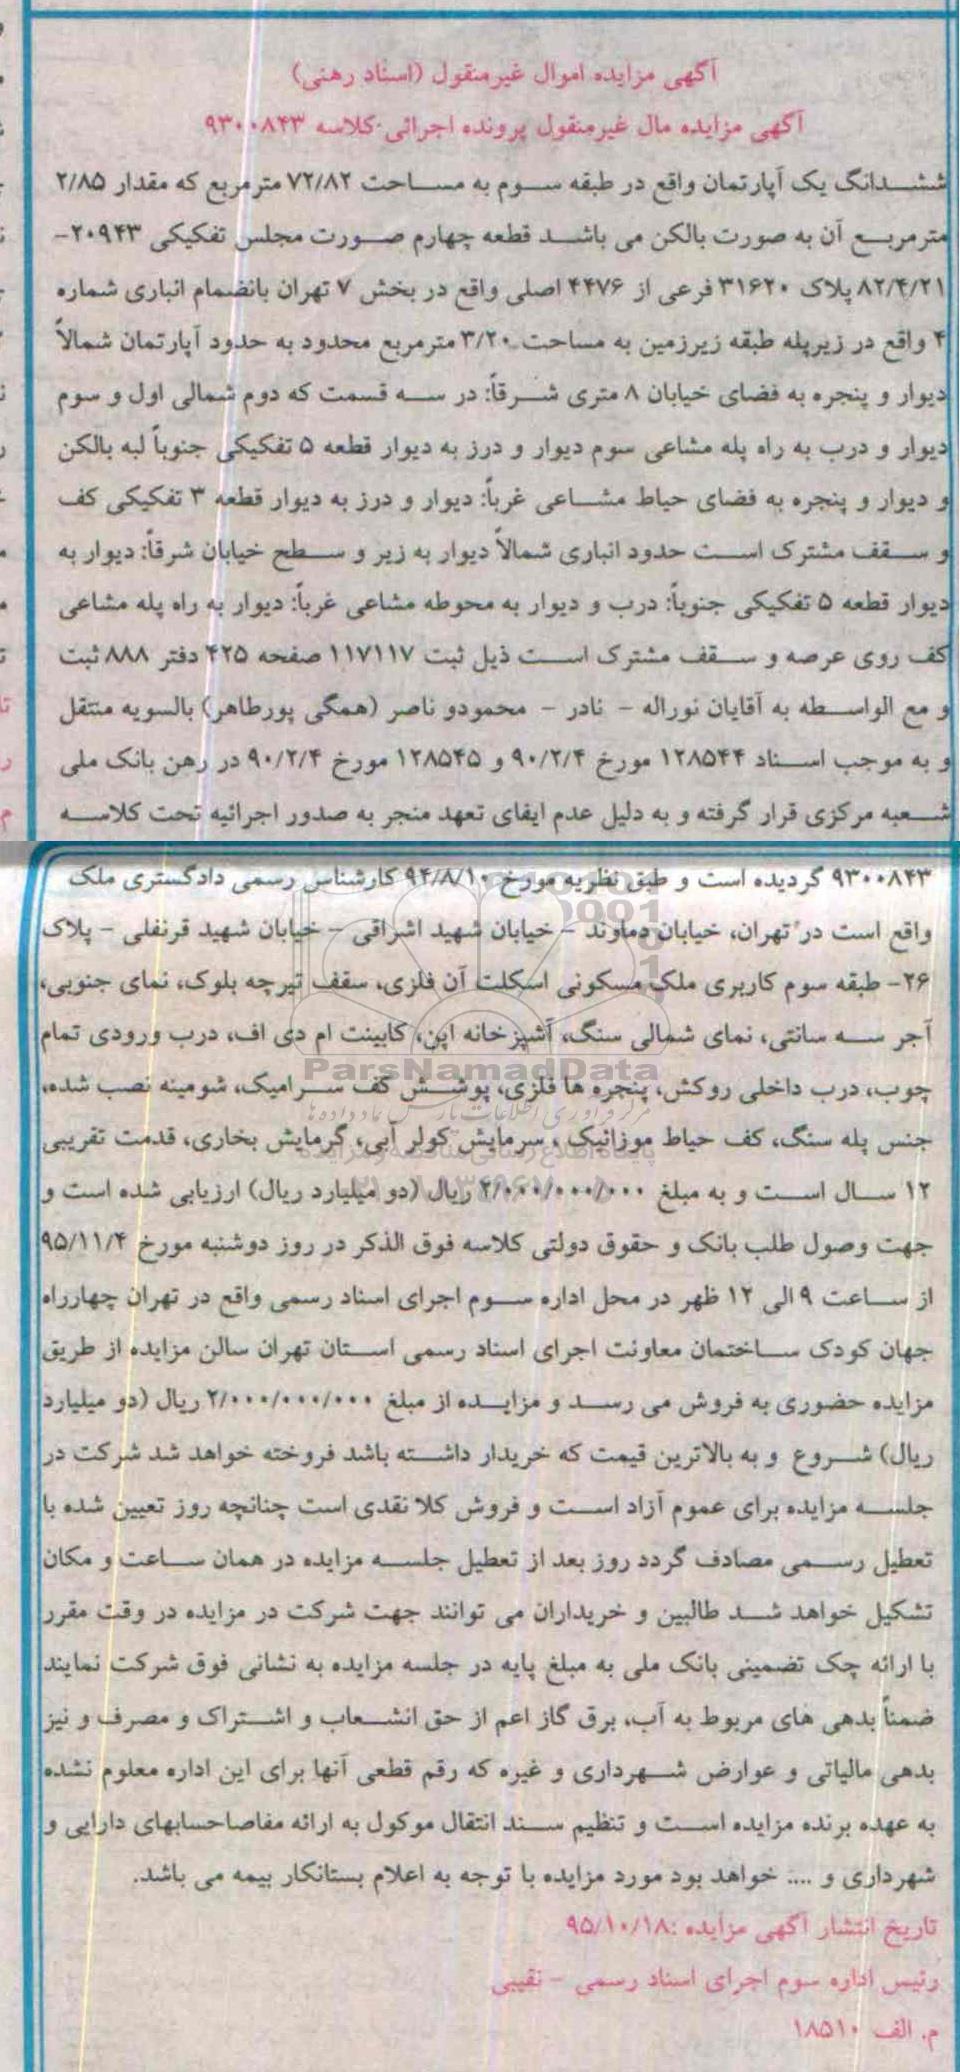 آگهی مزایده اموال غیرمنقول (اسناد رهنی)
آگهی مزایده مال غیرمنقول پرونده اجرائی کلاسه ۹۳۰۰۸۴۳
ششدانگ یک آپارتمان واقع در طبقه سوم به مساحت ۷۲/۸۲ مترمربع که مقدار ۲/۸۵
مترمربع آن به صورت بالکن می باشد قطعه چهارم صورت مجلس تفکیکی ۲۰۹۴۳-
۸۲/۴/۲۱ پلاک ۳۱۶۲۰ فرعی از ۴۴۷۶ اصلی واقع در بخش ۷ تهران بانضمام انباری شماره
۴ واقع در زیرپله طبقه زیرزمین به مساحت ۳/۲۰ مترمربع محدود به حدود آپارتمان شمالاً
دیوار و پنجره به فضای خیابان ۸ متری شرقاً: در سه قسمت که دوم شمالی اول و سوم
دیوار و درب به راه پله مشاعی سوم دیوار و درز به دیوار قطعه ۵ تفکیکی جنوباً لبه بالکن
و دیوار و پنجره به فضای حیاط مشاعی غرباً: دیوار و درز به دیوار قطعه ۳ تفکیکی کف
و سقف مشترک است حدود انباری شمالاً دیوار به زیر و سطح خیابان شرقاً: دیوار به
دیوار قطعه ۵ تفکیکی جنوباً: درب و دیوار به محوطه مشاعی غرباً: دیوار به راه پله مشاعی
کف روی عرصه و سقف مشترک است ذیل ثبت ۱۱۷۱۱۷ صفحه ۴۲۵ دفتر ۸۸۸ ثبت
و مع الواسطه به آقایان نوراله - نادر - محمودو ناصر (همگی پورطاهر) بالسویه منتقل
و به موجب اسناد ۱۲۸۵۴۴ مورخ ۹۰/۲/۴ و ۱۲۸۵۴۵ مورخ ۹۰/۲/۴ در رهن بانک ملی
شعبه مرکزی قرار گرفته و به دلیل عدم ایفای تعهد منجر به صدور اجرائیه تحت کلاسه
۹۳۰۰۸۴۳ گردیده است و طبق نظریه مورخ ۹۴/۸/۱۰ کارشناس رسمی دادگستری ملک
واقع است در تهران، خیابان دماوند - خیابان شهید اشراقی - خیابان شهید قرنفلی - پلاک
۲۶- طبقه سوم کاربری ملک مسکونی اسکلت آن فلزی، سقف تیرچه بلوک، نمای جنوبی،
آجر سه سانتی، نمای شمالی سنگ، آشپزخانه اپن، کابینت ام دی اف، درب ورودی تمام
چوب، درب داخلی روکش، پنجره ها فلزی، پوشش کف سرامیک، شومینه نصب شده،
جنس پله سنگ، کف حیاط موزائیک، سرمایش کولر آبی، گرمایش بخاری، قدمت تقریبی
۱۲ سال است و به مبلغ ۲/۰۰۰/۰۰۰/۰۰۰ ریال (دو میلیارد ریال) ارزیابی شده است و
جهت وصول طلب بانک و حقوق دولتی کلاسه فوق الذکر در روز دوشنبه مورخ ۹۵/۱۱/۴
از ساعت ۹ الی ۱۲ ظهر در محل اداره سوم اجرای اسناد رسمی واقع در تهران چهارراه
جهان کودک ساختمان معاونت اجرای اسناد رسمی استان تهران سالن مزایده از طریق
مزایده حضوری به فروش می رسد و مزایده از مبلغ ۲/۰۰۰/۰۰۰/۰۰۰ ریال (دو میلیارد
ریال) شروع و به بالاترین قیمت که خریدار داشته باشد فروخته خواهد شد شرکت در
جلسه مزایده برای عموم آزاد است و فروش کلا نقدی است چنانچه روز تعیین شده با
تعطیل رسمی مصادف گردد روز بعد از تعطیل جلسه مزایده در همان ساعت و مکان
تشکیل خواهد شد طالبین و خریداران می توانند جهت شرکت در مزایده در وقت مقرر
با ارائه چک تضمینی بانک ملی به مبلغ پایه در جلسه مزایده به نشانی فوق شرکت نمایند
ضمناً بدهی های مربوط به آب، برق گاز اعم از حق انشعاب و اشتراک و مصرف و نیز
بدهی مالیاتی و عوارض شهرداری و غیره که رقم قطعی آنها برای این اداره معلوم نشده
به عهده برنده مزایده است و تنظیم سند انتقال موکول به ارائه مفاصاحسابهای دارایی و
شهرداری و .... خواهد بود مورد مزایده با توجه به اعلام بستانکار بیمه می باشد.
تاریخ انتشار آگهی مزایده :۹۵/۱۰/۱۸
رئیس اداره سوم اجرای اسناد رسمی - نقیبی
م. الف ۱۸۵۱۰
ParsNamadData